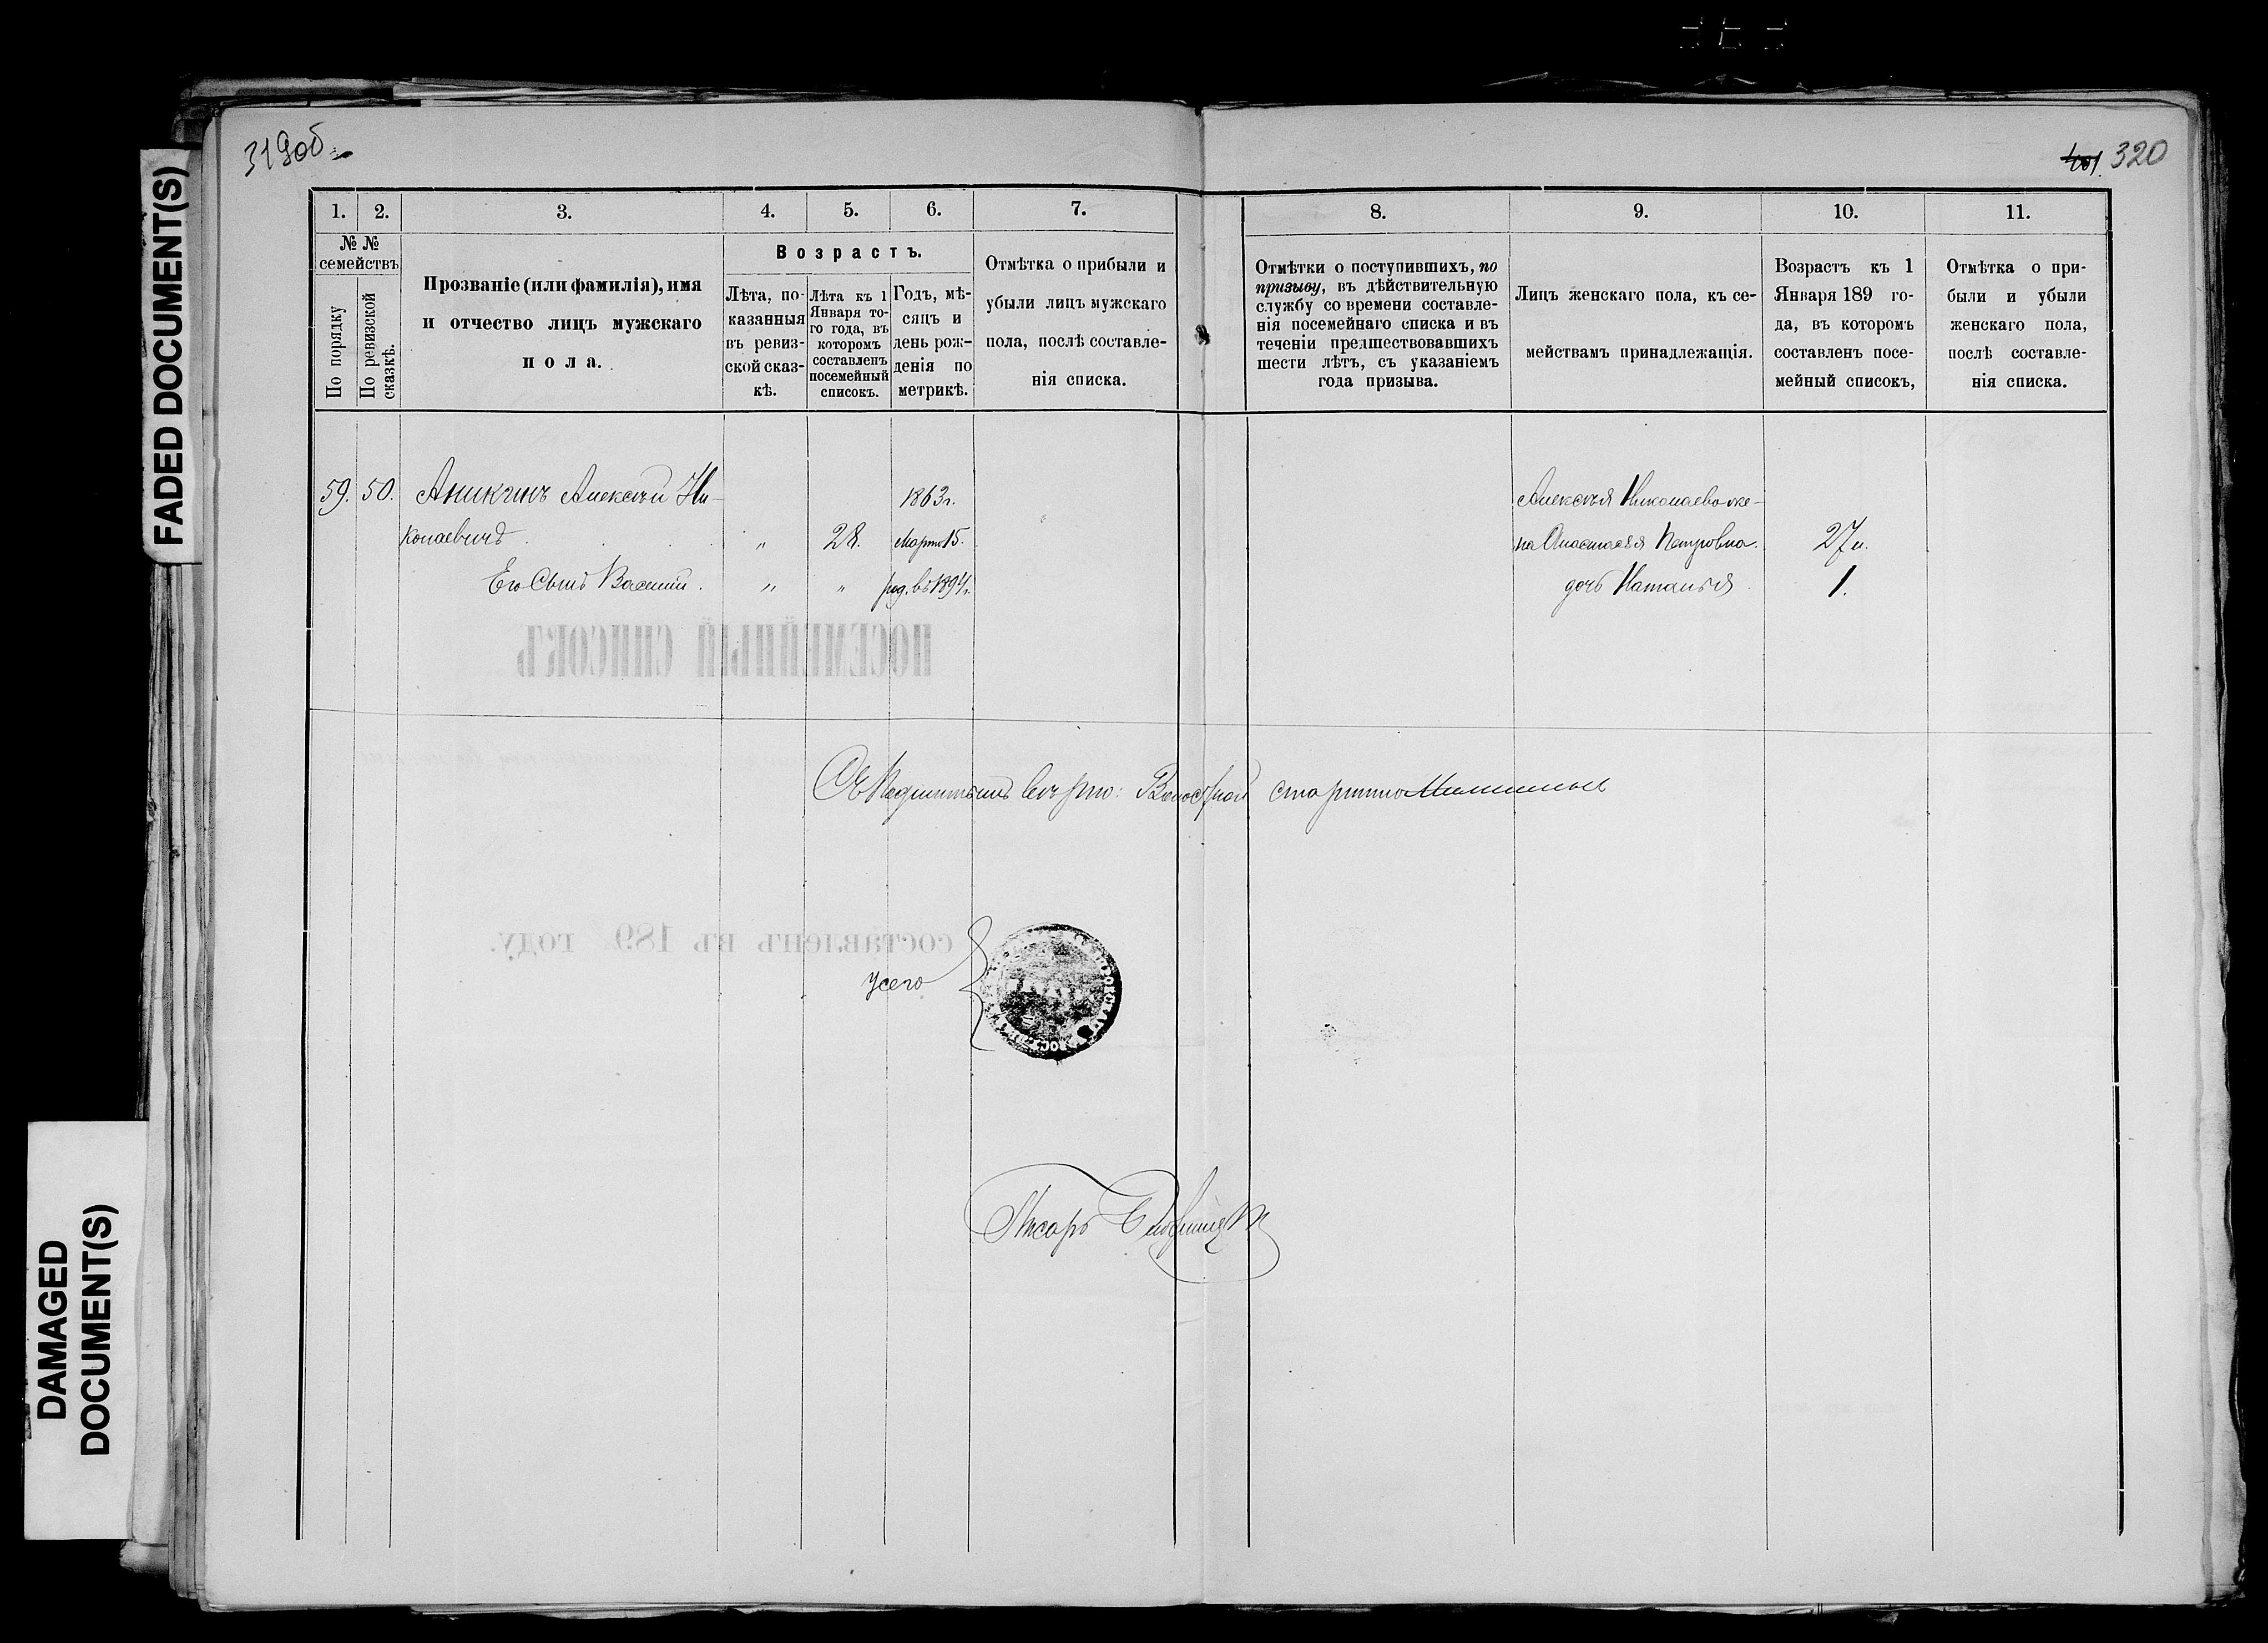 319об
401. 320
FADED DOCUMENT(S)
DAMAGED
DOCUMENT(S)
1. 2. 3. 4. 5. 6. 7. 8. 9. 10. 11.
№ № семействъ
По порядку
По ревизской сказкѣ.
Прозваніе (или фамилія), имя
и отчество лицъ мужскаго
пола.
Возрастъ.
Лѣта, по-
казанныя
въ ревиз-
ской сказ-
кѣ.
Лѣта къ 1
Января то-
го года, въ
которомъ
составленъ
посемейный
списокъ.
Годъ, мѣ-
сяцъ и
день рож-
денія по
метрикѣ.
Отмѣтка о прибыли и
убыли лицъ мужскаго
пола, послѣ составле-
нія списка.
Отмѣтки о поступившихъ, по
призыву, въ дѣйствительную
службу со времени составле-
нія посемейнаго списка и въ
теченіи предшествовавшихъ
шести лѣтъ, съ указаніемъ
года призыва.
Лицъ женскаго пола, къ се-
мействамъ принадлежащія.
Возрастъ къ 1
Января 189 го-
да, въ которомъ
составленъ посе-
мейный списокъ,
Отмѣтка о при-
были и убыли
женскаго пола,
послѣ составле-
нія списка.
59. 50. Аникинъ Алексѣй Ни- 1863г. Алексѣя Николаева же-
колаевичъ " 28. Марта 15. на Анастасія Петровна. 27л.
Его Сынъ Василій. " " род. въ 1894г. дочь Наталья 1.
ПОСЕМЕЙНЫЙ СПИСОКЪ
Съ Подлиннымъ вѣрно: Волостной старшина
составленъ въ 189 году.
Писарь